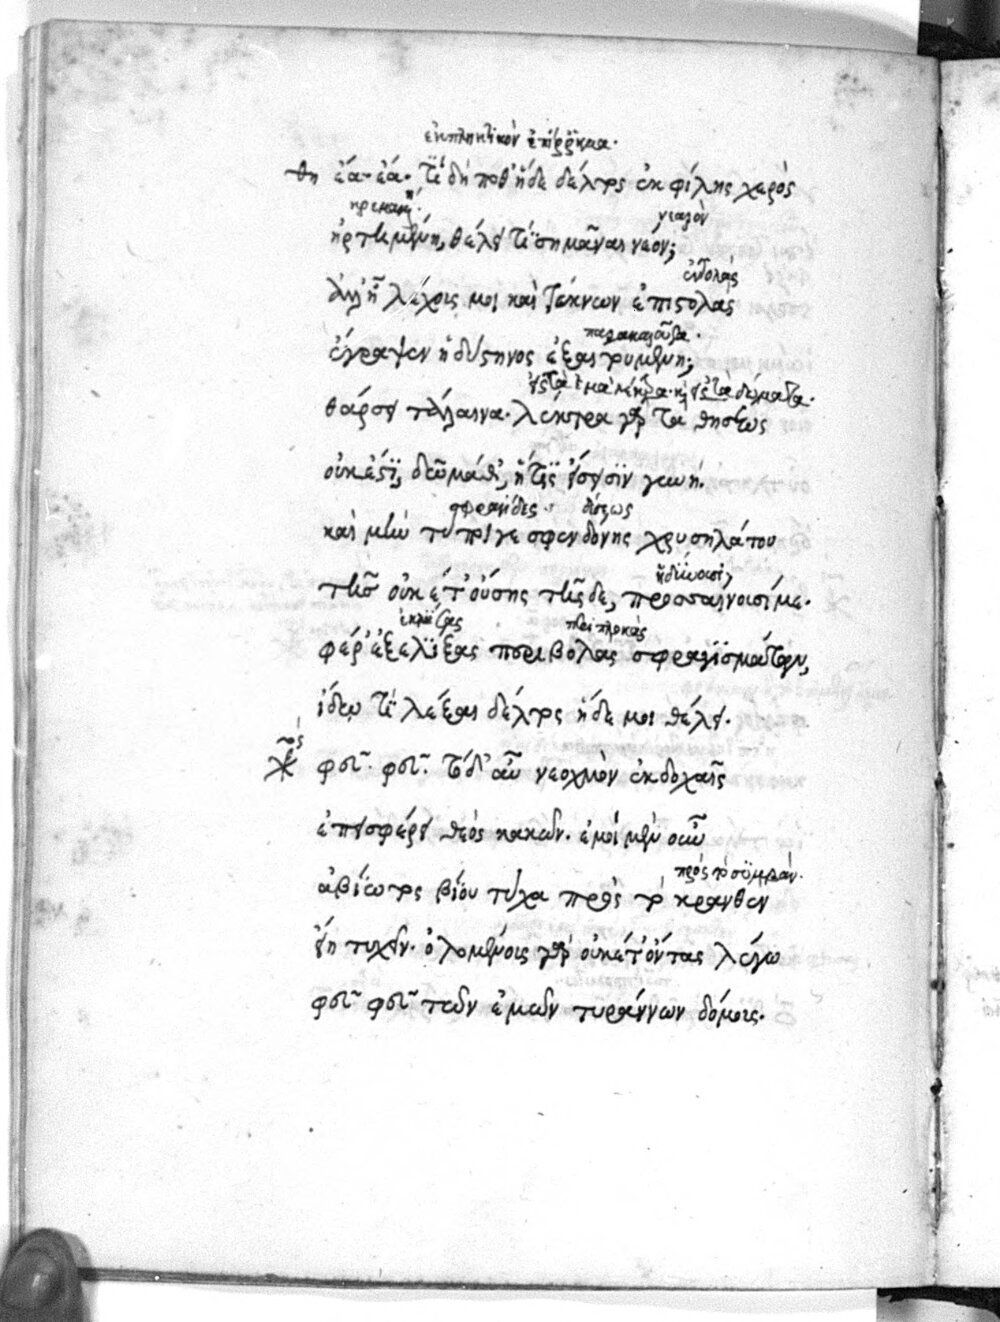 ἐκπληκτικὸν ἐπίρρημα.
θη ἔα· ἔα· τί δή ποθ' ἥδε δέλτος ἐκ φίλης χερὸς
ἠρτημένη, θέλει τί σημᾶναι νέον;
ἐντολὰς
ἀλλ' ἦ λέχους μοι καὶ τέκνων ἐπιστολὰς
παρακαλοῦσα.
ἔγραψεν ἡ δύστηνος ἐξαιτουμένη;
θάρσει τάλαινα· λέκτρα γὰρ τὰ θησέως
οὐκ ἔστι, δῶμά θ', ἥτις εἴσεισιν γυνή.
σφραγίδες
καὶ μὴν τύποι γε σφενδόνης χρυσηλάτου
τῆσ οὐκέτ' οὔσης τῆς δε, προσσαίνουσί με.
φέρ' ἐξελίξας περιβολὰς σφραγισμάτων,
ἴδω τί λέξαι δέλτος ἥδε μοι θέλει.
χος φεῦ· φεῦ· τόδ' αὖ νεοχμὸν ἐκδοχαῖς
ἐπεισφέρει θεὸς κακόν. ἐμοὶ μὲν οὖν
ἀβίωτος βίου τύχα πρὸς τὸ κρανθὲν
εἴη τυχεῖν· ὀλομένους γὰρ οὐκέτ' ὄντας λέγω
φεῦ φεῦ τῶν ἐμῶν τυράννων δόμους.